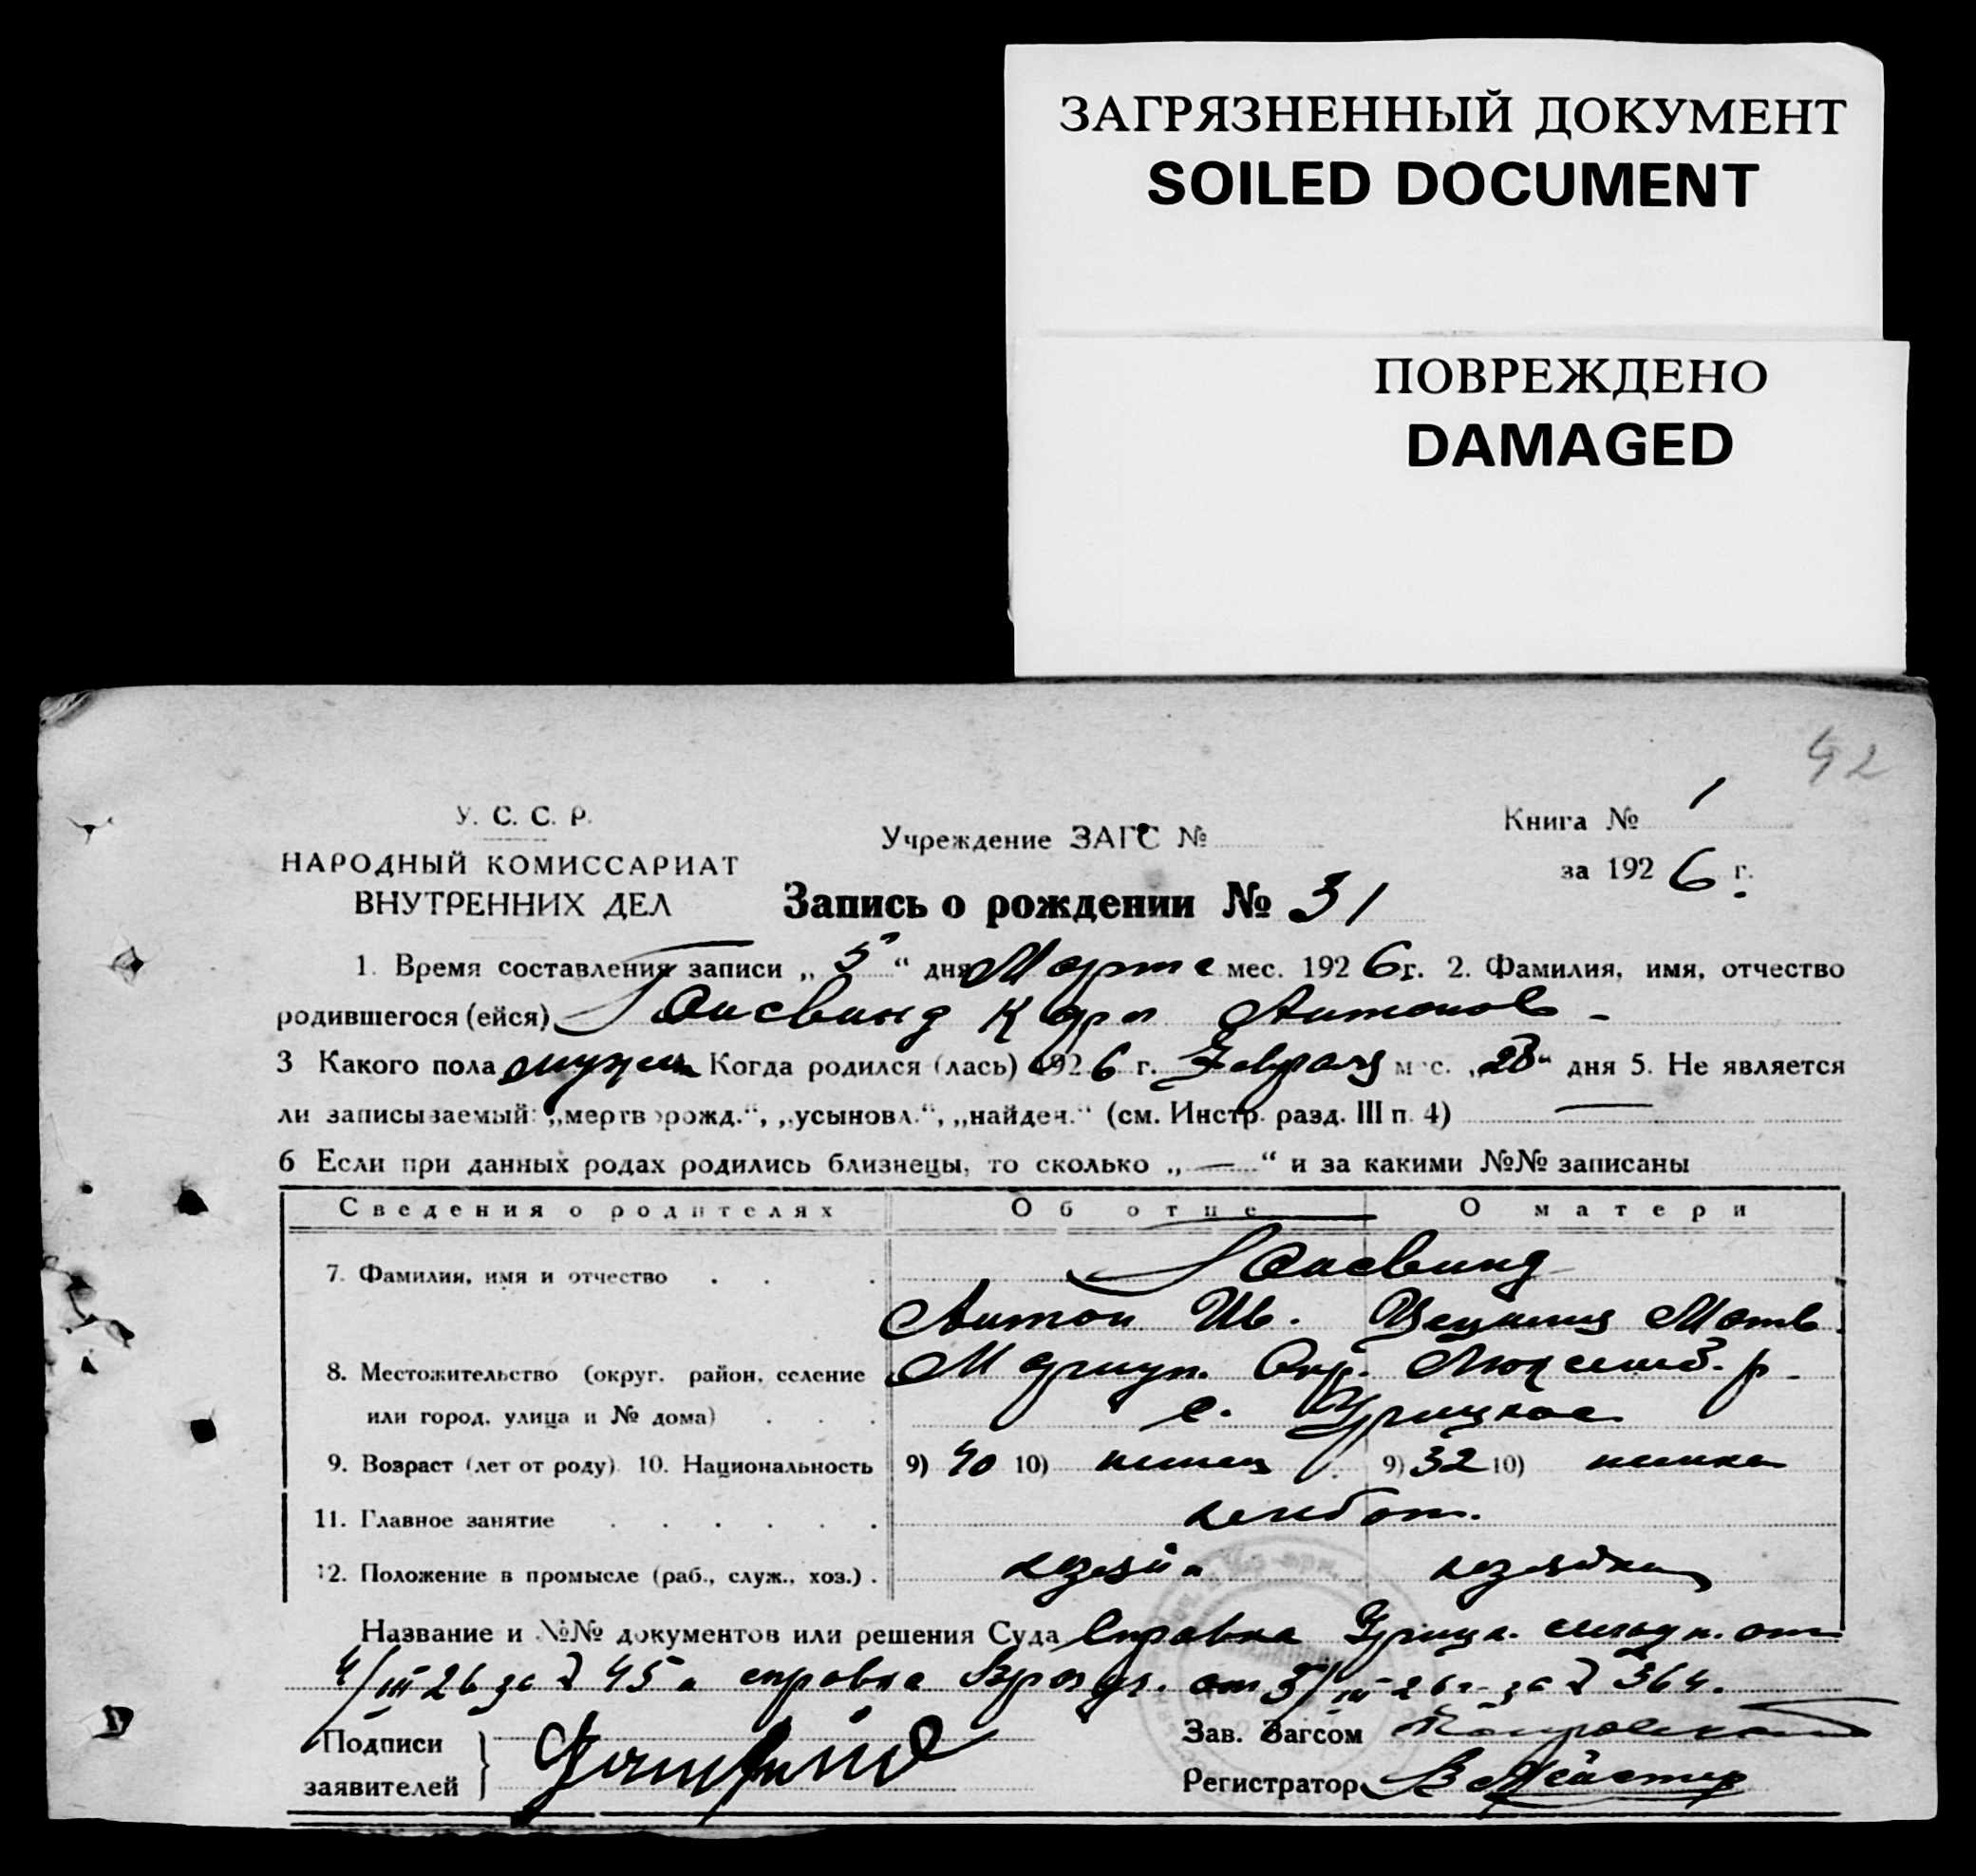 ЗАГРЯЗНЕННЫЙ ДОКУМЕНТ
SOILED DOCUMENT
ПОВРЕЖДЕНО
DAMAGED
42
У. С. С. Р.
НАРОДНЫЙ КОМИССАРИАТ
ВНУТРЕННИХ ДЕЛ
Учреждение ЗАГС №
Книга № 1
за 1926 г.
Запись о рождении № 31
1. Время составления записи „5“ дня Марта мес. 1926 г. 2. Фамилия, имя, отчество
родившегося (ейся) Гансвинд Карл Антонов
3 Какого пола мужск 4. Когда родился (лась) 1926 г. Февраля мес. „28“ дня 5. Не является
ли записываемый: „мертворожд.“, „усыновл.“, „найден.“ (см. Инстр. разд. III п. 4) —
6 Если при данных родах родились близнецы, то сколько „—“ и за какими №№ записаны
Сведения о родителях Об отце О матери
7. Фамилия, имя и отчество Гансвинд
Антон Ив. Цецилия Матв.
8. Местожительство (округ, район, селение Мариуп. Окр. Люксемб. р.
или город, улица и № дома) с. Урицкое
9. Возраст (лет от роду) 10. Национальность 9) 40 10) немец 9) 32 10) немка
11. Главное занятие хлебоп.
12. Положение в промысле (раб., служ., хоз.) хозяин хозяйка
Название и №№ документов или решения Суда Справка Урицк. от
4/III 26 за № 45 и справка от 5/III-26 г. за № 364.
Подписи
заявителей
Зав. Загсом
Регистратор